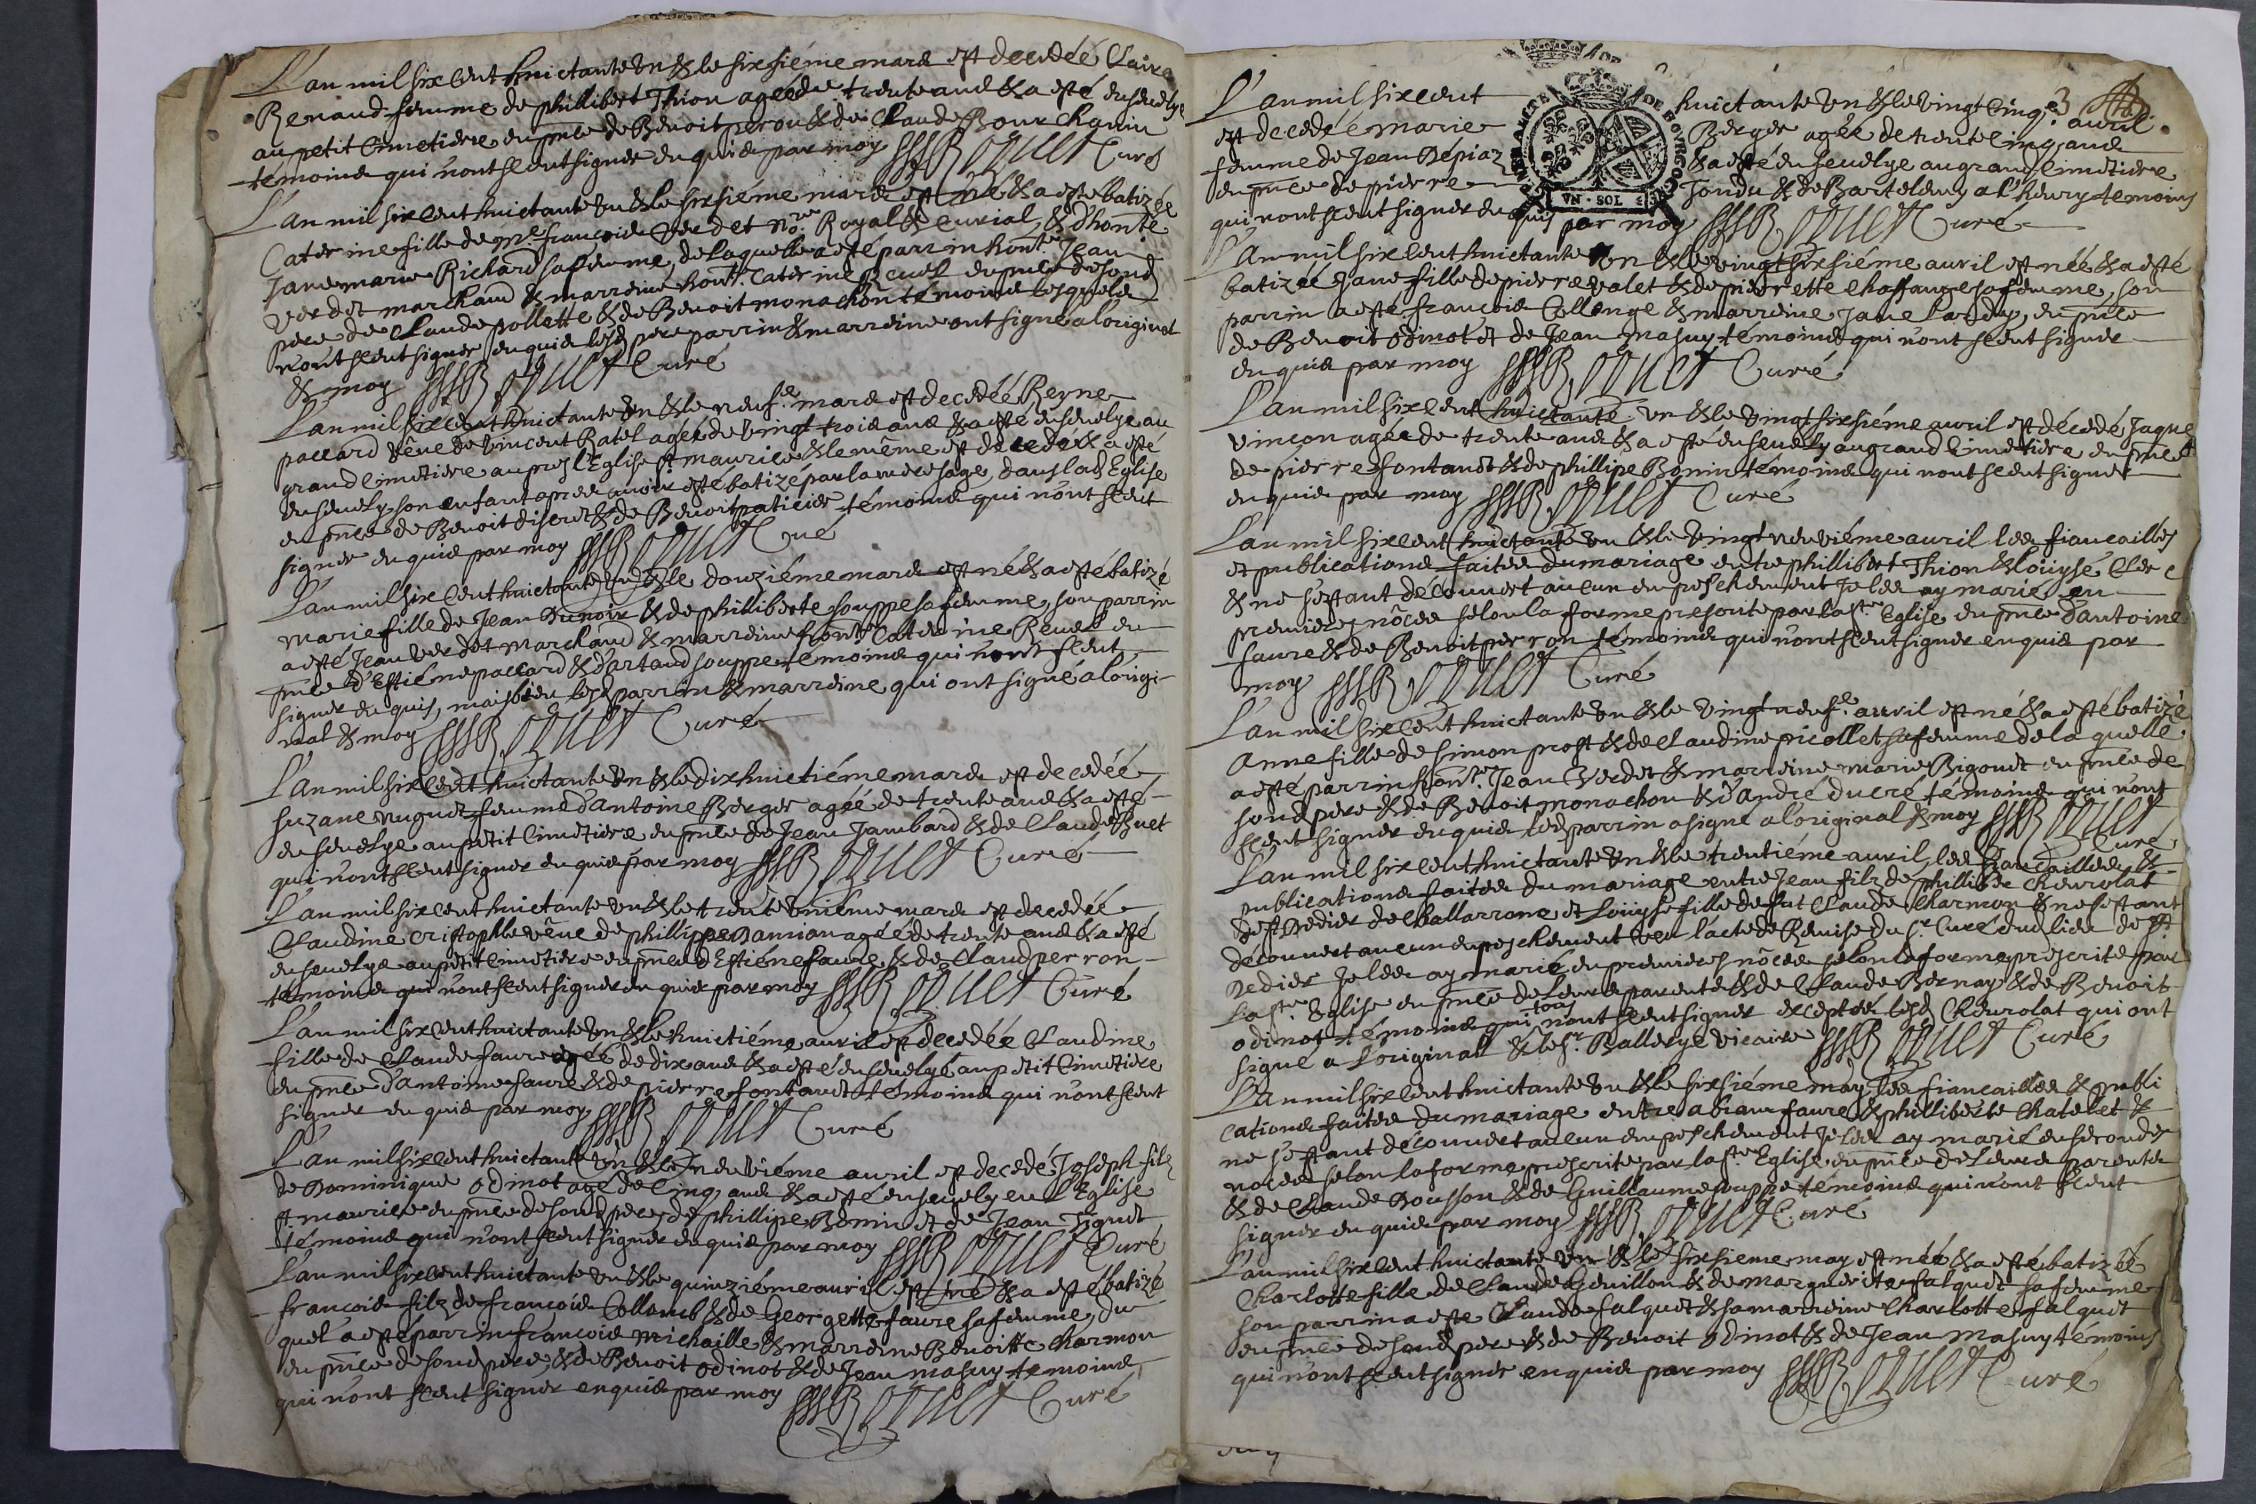 L'an mil six cent huictante un & le sixsiéme mars est decedée Claire
Renaud femme de phillibert Thion agée de trente ans & a esté ensevelye
au petit Cimetiere en pnce de Benoit peron & de Claude Bourchanin
témoins qui n'ont sceut signer enquis par moy Curé
L'an mil six cent huictante un & le sixsieme mars est né & a esté batizée
Caterine fille de me françois Verdet nore Royal & Curial, & d'honte
Jane marie Richard sa femme, de laquelle a esté parrin honte Jean
Verdet marchand & marreine honte Caterine Revel en pnce de sond
pere de Claude pollette & de Benoit monachon témoins lesquels
n'ont sceut signer enquis lesd pere parrin & marreine ont signé a l'original
& moy Curé
L'an mil six cent huictante un & le neufe mars est decedée Reyne
paccard vêve de Vincent Ratel agée de vingt trois ans & a esté ensevelye au
grand cimetiere aupres l'Eglise st maurice & le même est decedé & a esté
ensevely son enfant apres avoir esté batizé par la mere sage, dans lad Eglise
en pnce de Benoit discret & de Benoit paticier témoins qui n'ont sceut
signer enquis par moy Curé
L'an mil six cent huictante un & le douziéme mars est né & a esté batizé
marie fille de Jean Dunoir & de philliberte souppe sa femme, son parrin
a esté Jean Verdet marchand & marreine honte Caterine Revel en
pnce d'Estiéne paccard & d'artaud souppe témoins qui n'ont sceut
signer enquis, mais bien lesd parrin & marreine qui ont signé a l'origi-
nal & moy Curé
L'an mil six cent huictante un & le dix huictiéme mars est decedée
suzane nuguet femme d'antoine Berger agée de trente ans & a esté
ensevelye au petit Cimetiere en pnce de Jean Jambard & de Claude Buet
qui n'ont sceut signer enquis par moy Curé
L'an mil six cent huictante un & le trente uniéme mars est decedée
Claudine Cristophle vêve de phillippe Damian agée de trente ans & a esté
ensevelye au petit Cimetiere en pnce d'Estiéne faure & de Claud perron
témoins qui n'ont sceut signer enquis par moy Curé
L'an mil six cent huictante un & le huictiéme avril est decedée Claudine
fille de Claude faure agée de dix ans & a esté ensevelye au petit Cimetiere
en pnce d'antoine faure & de pierre fontanet témoins qui n'ont sceut
signer enquis par moy Curé
L'an mil six cent huictante un & le neuviéme avril est decedé Joseph filz
de Dominique odinot agé de cinq ans & a esté ensevely en l'Eglise
st maurice en pnce de sond pere, de phillipe Bonin et de Jean Tignet
témoins qui n'ont sceut signer enquis par moy Curé
L'an mil six cent huictante un & le quinziéme avril est né & a esté batizé
françois filz de françois Collomb & de Georgette faure sa femme, du
quel a esté parrin françois michaille & marreine Benoitte Charmon
en pnce de sond pere, & de Benoit odinot & de Jean masuy témoins
qui n'ont sceut signer enquis par moy Curé
3
L'an mil six cent huictante un & le vingt cinqe avril
est decedée marie Berger agée de trente cinq ans
femme de Jean Depiaz & a esté ensevelye au grand cimetiere
en pnce de pierre Jondu & de Bartelemy a L'heury témoins
qui n'ont sceut signer enquis par moy Curé
GENERALITE DE BOURGOGNE
VN · SOL
L'an mil six cent huictante un & le vingt sixsiéme avril est née & a esté
batizée Jane fille de pierre valet & de pierrette Chaffange sa femme, son
parrin a esté françois Collonge & marreine Jane Lardy, en pnce
de Benoit odinot et de Jean masuy témoins qui n'ont sceut signer
enquis par moy Curé
L'an mil six cent huictante un & le vingt sixsiéme avril est décedé Jaque
vinçon agée de trente ans & a esté ensevely au grand cimetiere en pnce
de pierre fontanet & de phillipe Bonin témoins qui n'ont sceut signer
enquis par moy Curé
L'an mil six cent huictante un & le vingt neuviéme avril les fiancailles
et publications faites du mariage entre phillibert Thion & Loüyse Clerc
& ne s'estant découvert aucun empeschement Je les ay marié en
premieres nôces selon la forme prescrite par la ste Eglise en pnce d'antoine
faure & de Benoit perron témoins qui n'ont sceut signer enquis par
moy Curé
L'an mil six cent huictante un & le vingt neufe avril est né & a esté batizé
Anne fille de simon prost & de Claudine picollet sa femme de la quelle
a esté parrin honte Jean Verdet & marreine marie Bigonet en pnce de
sond pere & de Benoit monachon & d'André ducré témoins qui n'ont
sceut signer enquis led parrin a signé a l'original & moy Curé
L'an mil six cent huictante un & le trentiéme avril les fiancailles &
publications faites du mariage entre Jean filz de phillibe Chevrolat
de st Dedier de Challarrone et Loüyse fille de fut Claude Charmon & ne s'estant
découvert aucun empeschement veu l'acte de Remise du sr Curé dud lieu de st
Dedier Je les ay marié en premieres nôces selon la forme prescrite par
la ste Eglise en pnce de leurs parents & de Claude Bernay & de Benoit
odinot témoins qui tous n'ont sceut signer exceptés lesd Chevrolat qui ont
signé a L'original & le sr Ballerye vicaire Curé
L'an mil six cent huictante un & le sixsiéme may les fiancailles & publi
cations faites du mariage entre abram faure & philliberte Chatelet &
ne s'estant découvert aucun empeschement Je les ay marié en secondes
noces selon la forme prescrite par la ste Eglise en pnce de leurs parents
& de Claude Dousson & de Guillaume souppe témoins qui n'ont sceut
signer enquis par moy Curé
L'an mil six cent huictante un & le sixsieme may est née & a esté batizée
Charlotte fille de Claude Genillon & de marguerite falquet sa femme
son parrin a esté Claude falquet & sa marreine Charlotte falquet
en pnce de sond pere & de Benoit odinot & de Jean masuy témoins
qui n'ont sceut signer enquis par moy Curé